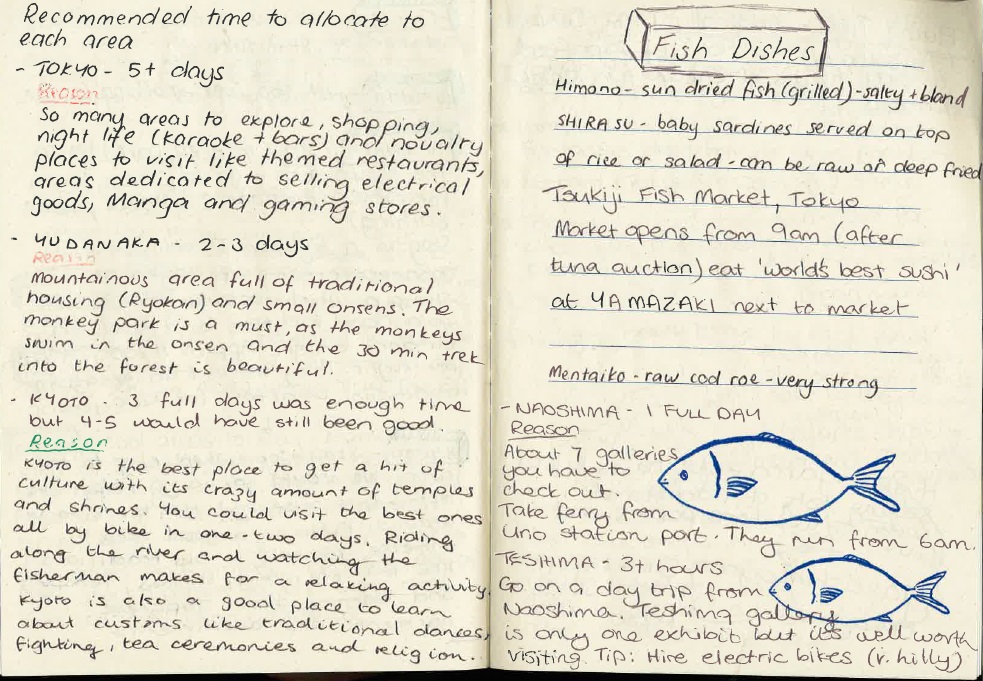 Recommended time to allocate to
each area
- TOKYO - 5+ days
Reason
So many areas to explore, shopping,
night life (karaoke + bars) and novalty
places to visit like themed restaurants,
areas dedicated to selling electrical
goods, Manga and gaming stores.
- YUDANAKA - 2-3 days
Reason
Mountainous area full of traditional
housing (Ryokan) and small onsens. The
monkey park is a must, as the monkeys
swim in the onsen and the 30 min trek
into the forest is beautiful.
- KYOTO - 3 full days was enough time
but 4-5 would have still been good.
Reason
Kyoto is the best place to get a hit of
culture with its crazy amount of temples
and shrines. You could visit the best ones
all by bike in one-two days. Riding
along the river and watching the
fisherman makes for a relaxing activity.
Kyoto is also a good place to learn
about customs like traditional dances,
fighting, tea ceremonies and religion.
Fish Dishes
Himono - sun dried fish (grilled) - salty + bland
SHIRASU - baby sardines served on top
of rice or salad - can be raw or deep fried
Tsukiji Fish Market, Tokyo
Market opens from 9am (after
tuna auction) eat 'world's best sushi'
at YAMAZAKI next to market
Mentaiko - raw cod roe - very strong
- NAOSHIMA - 1 FULL DAY
Reason
About 7 galleries
you have to
check out.
Take ferry from
Uno station port. They run from 6am.
TESHIMA - 3+ hours
Go on a day trip from
Naoshima. Teshima gallery
is only one exhibit but its well worth
visiting. Tip: Hire electric bikes (v. hilly)